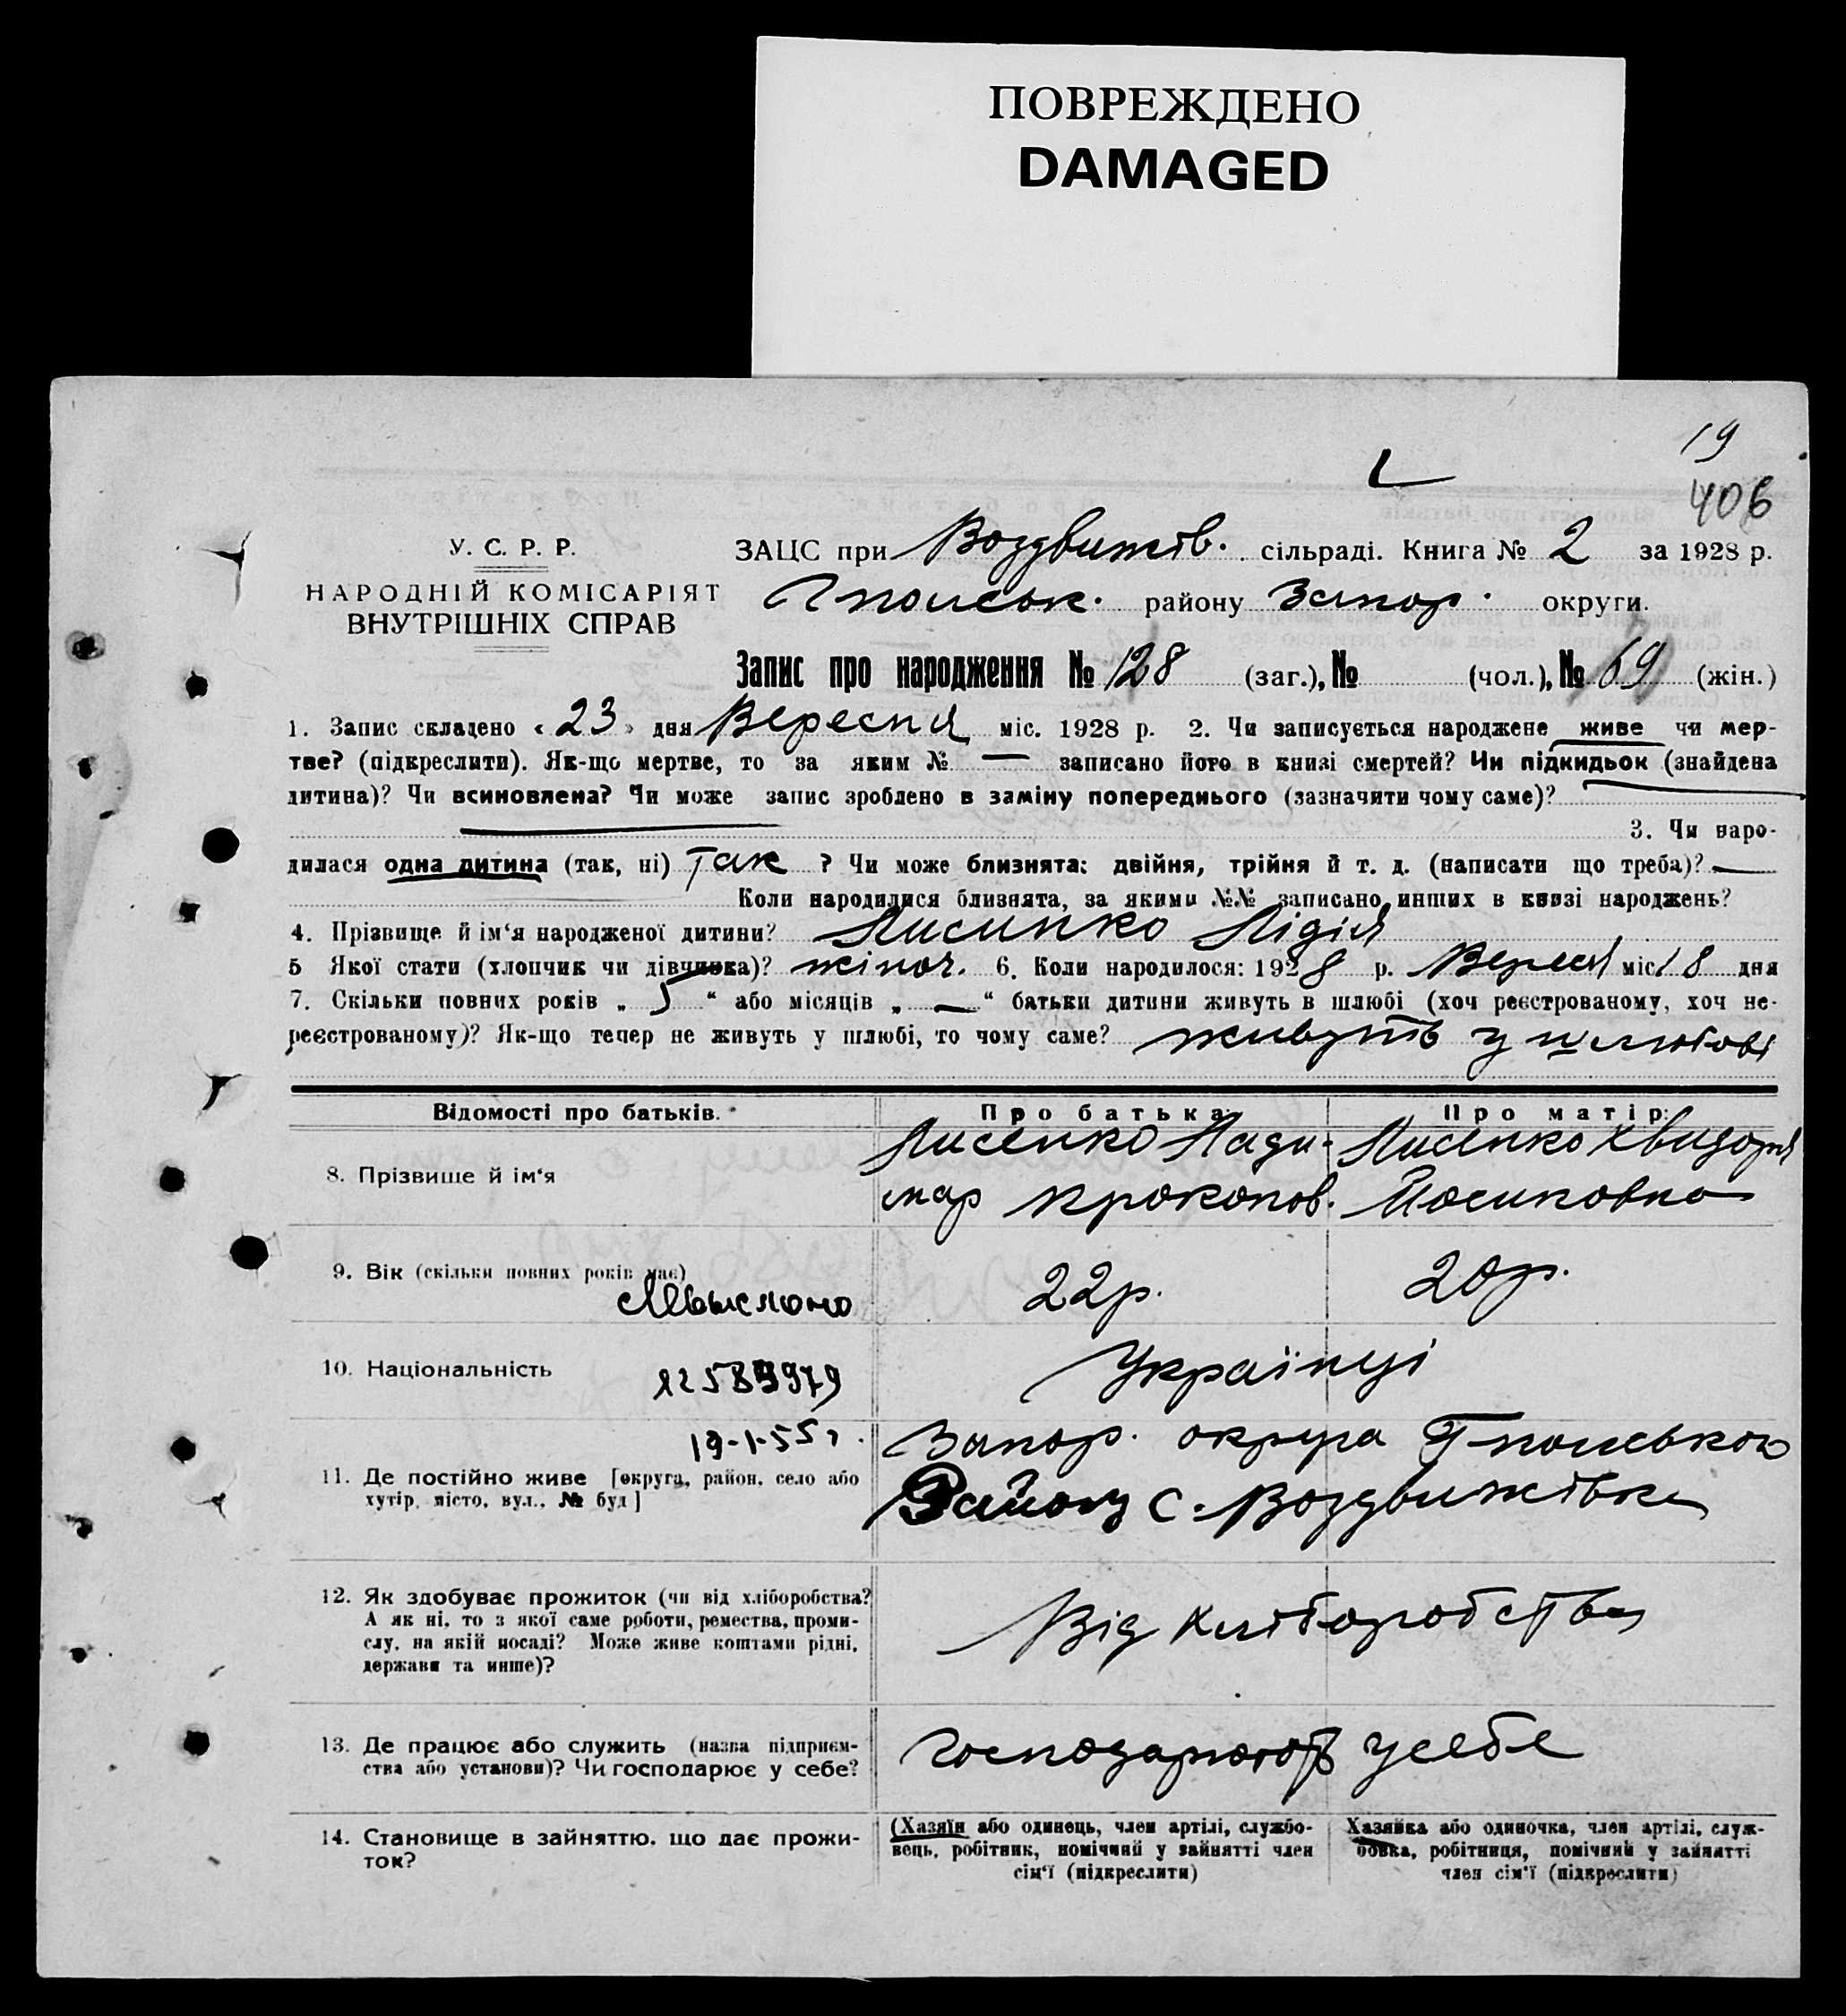 ПОВРЕЖДЕНО
DAMAGED
19
406
У. С. Р. Р.
НАРОДНІЙ КОМІСАРІЯТ
ВНУТРІШНІХ СПРАВ
ЗАЦС при Воздвижів. сільраді. Книга № 2 за 1928 р.
району Запор. округи.
Запис про народження № 128 (заг.), № (чол.), № 69 (жін.)
1. Запис складено « 23 » дня Вересня міс. 1928 р. 2. Чи записується народжене живе чи мер-
тве? (підкреслити). Як-що мертве, то за яким № — записано його в книзі смертей? Чи підкидьок (знайдена
дитина)? Чи всиновлена? Чи може запис зроблено в заміну попереднього (зазначити чому саме)?
3. Чи наро-
дилася одна дитина (так, ні) Так ? Чи може близнята: двійня, трійня й т. д. (написати що треба)? —
Коли народилися близнята, за якими №№ записано инших в книзі народжень?
4. Прізвище й ім‘я народженої дитини? Лисинко Лідія
5 Якої стати (хлопчик чи дівчинка)? жіноч. 6. Коли народилося: 1928 р. Вересня міс. 18 дня
7. Скільки повних років „ “ або місяців „ — “ батьки дитини живуть в шлюбі (хоч реєстрованому, хоч не-
реєстрованому)? Як-що тепер не живуть у шлюбі, то чому саме? живуть у шлюбові
Відомості про батьків. Про батька Про матір:
8. Прізвище й ім‘я
Лисенко Лади- Лисенко Хвидоря
мар Прокопов. Йосиповна
9. Вік (скільки повних років має) 22р. 20р.
10. Національність Українці
12589979
19-1-55 г.
11. Де постійно живе [округа, район, село або
хутір, місто, вул., № буд]
Запор. округа
Району с. Воздвижівка
12. Як здобуває прожиток (чи від хліборобства?
А як ні, то з якої саме роботи, ремества, проми-
слу, на якій посаді? Може живе коштами рідні,
держави та инше)?
Від хліборобства
13. Де працює або служить (назва підприєм-
ства або установи)? Чи господарює у себе?
Господарюють у себе
14. Становище в зайняттю, що дає прожи-
ток?
(Хазяїн або одинець, член артілі, службо-
вець, робітник, помічний у зайнятті член
сім‘ї (підкреслити)
Хазяйка або одиночка, член артілі, служ-
бовка, робітниця, помічний у зайнятті
член сім‘ї (підкреслити)